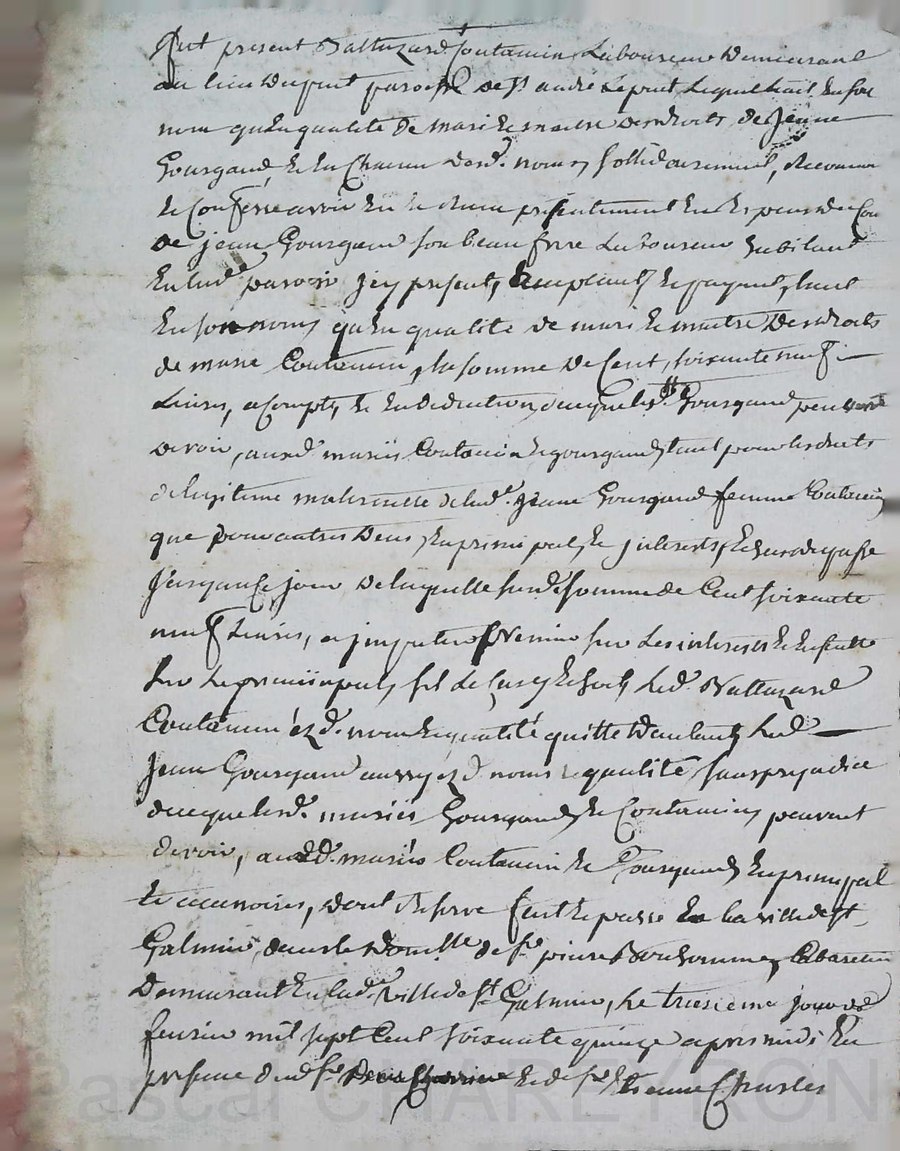 fut present Baltazard Coutanin Laboureur Demeurant
au lieu Dupuit paroisse de St andré Lepuit Lequel tant En son
nom qu'En qualité de mari Et maitre Des droits de Jeanne
Gourgaud Et En Chacun desd. noms sollidairement, a Reconnu
Et Confessé avoir Eu Et Reçu présentement En Especes de Cou
de jean Gourgaud son beau frere Laboureur habitant
En lad. paroisse Icy present, acceptant Et payant, tant
En son nom qu'En qualité de mari Et maitre Des droits
de marie Coutanin, La somme De Cent soixante neuf
Livres, acompte, Et En deduction de ce que lesd. Gourgaud peuvent
devoir, auxd. mariés Coutanin Et gourgaud tant pour les droits
de legitime maternelle de lad. Jeane Gourgaud femme Coutanin
que pour autres Deus, En principal, Et Interets Echus du passé
Jusqu'a Ce jour De laquelle susd. somme de Cent soixante
neuf Livres, a imputer sur Les interets Et Ensuite
sur Le principal, Led. Baltazard
Coutanin ezd. noms Et qualité quitte D'autant Led.
Jean Gourgaud aussy ezd. noms Et qualité sans prejudice
de ce que lesd. mariés Gourgaud Et Coutanin peuvent
devoir, auxd. mariés Coutanin Et Gourgaud En principal
Et accessoires, dont Reserve fait Et passé En la ville de St
Galmier, dans le Domicille de Sr pierre Bonhomme Cabaretier
Demeurant En lad. ville de St Galmier, Le troisieme jour de
fevrier mil sept Cent soixante quinze apres midi En
presence dud. Sr Et de Sr Etienne Charles
Pascal CHAREYRON